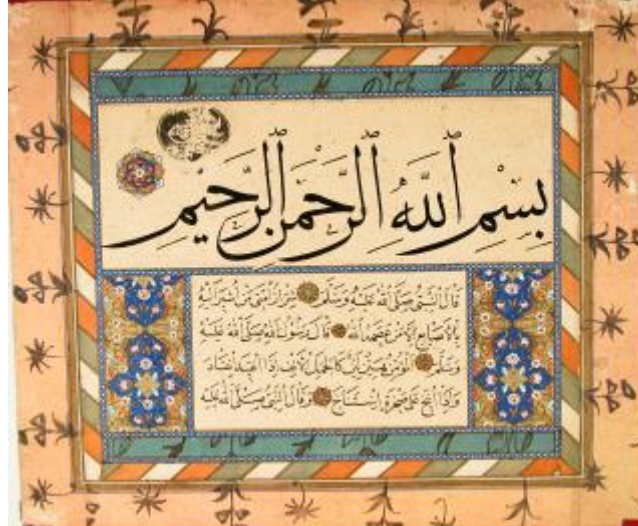 بِسْمِ اللّٰهِ الرَّحْمٰنِ الرَّحِيمِ
قَالَ النَّبِيُّ صَلَّى اللّٰهُ عَلَيْهِ وَسَلَّمَ شِرَارُ أُمَّتِي مَنْ أُشِيرَ إِلَيْهِ
بِالْأَصَابِعِ إِلَّا مَنْ عَصَمَهُ اللّٰهُ قَالَ رَسُولُ اللّٰهِ صَلَّى اللّٰهُ عَلَيْهِ
وَسَلَّمَ الْمُؤْمِنُ هَيِّنٌ لَيِّنٌ كَالْجَمَلِ الْأَنِفِ إِذَا انْقِيدَ انْقَادَ
وَإِذَا أُنِيخَ عَلَى صَخْرَةٍ اسْتَنَاخَ وَقَالَ النَّبِيُّ صَلَّى اللّٰهُ عَلَيْهِ